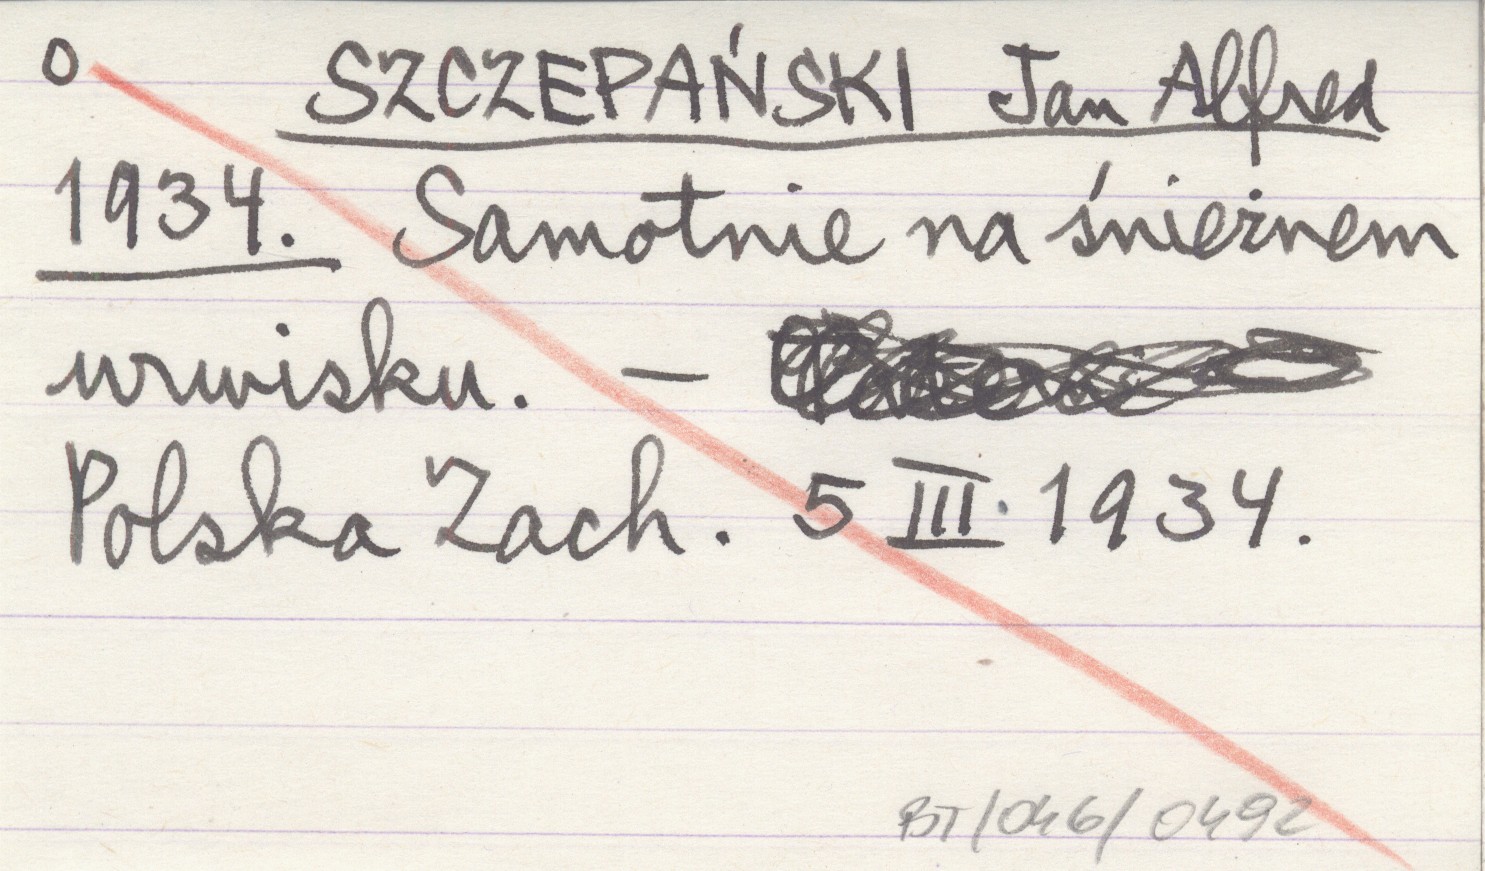 0 SZCZEPAŃSKI Jan Alfred
1934. Samotnie na śnieżnem
urwisku. —
Polska Zach. 5 III. 1934.
BT/046/0492